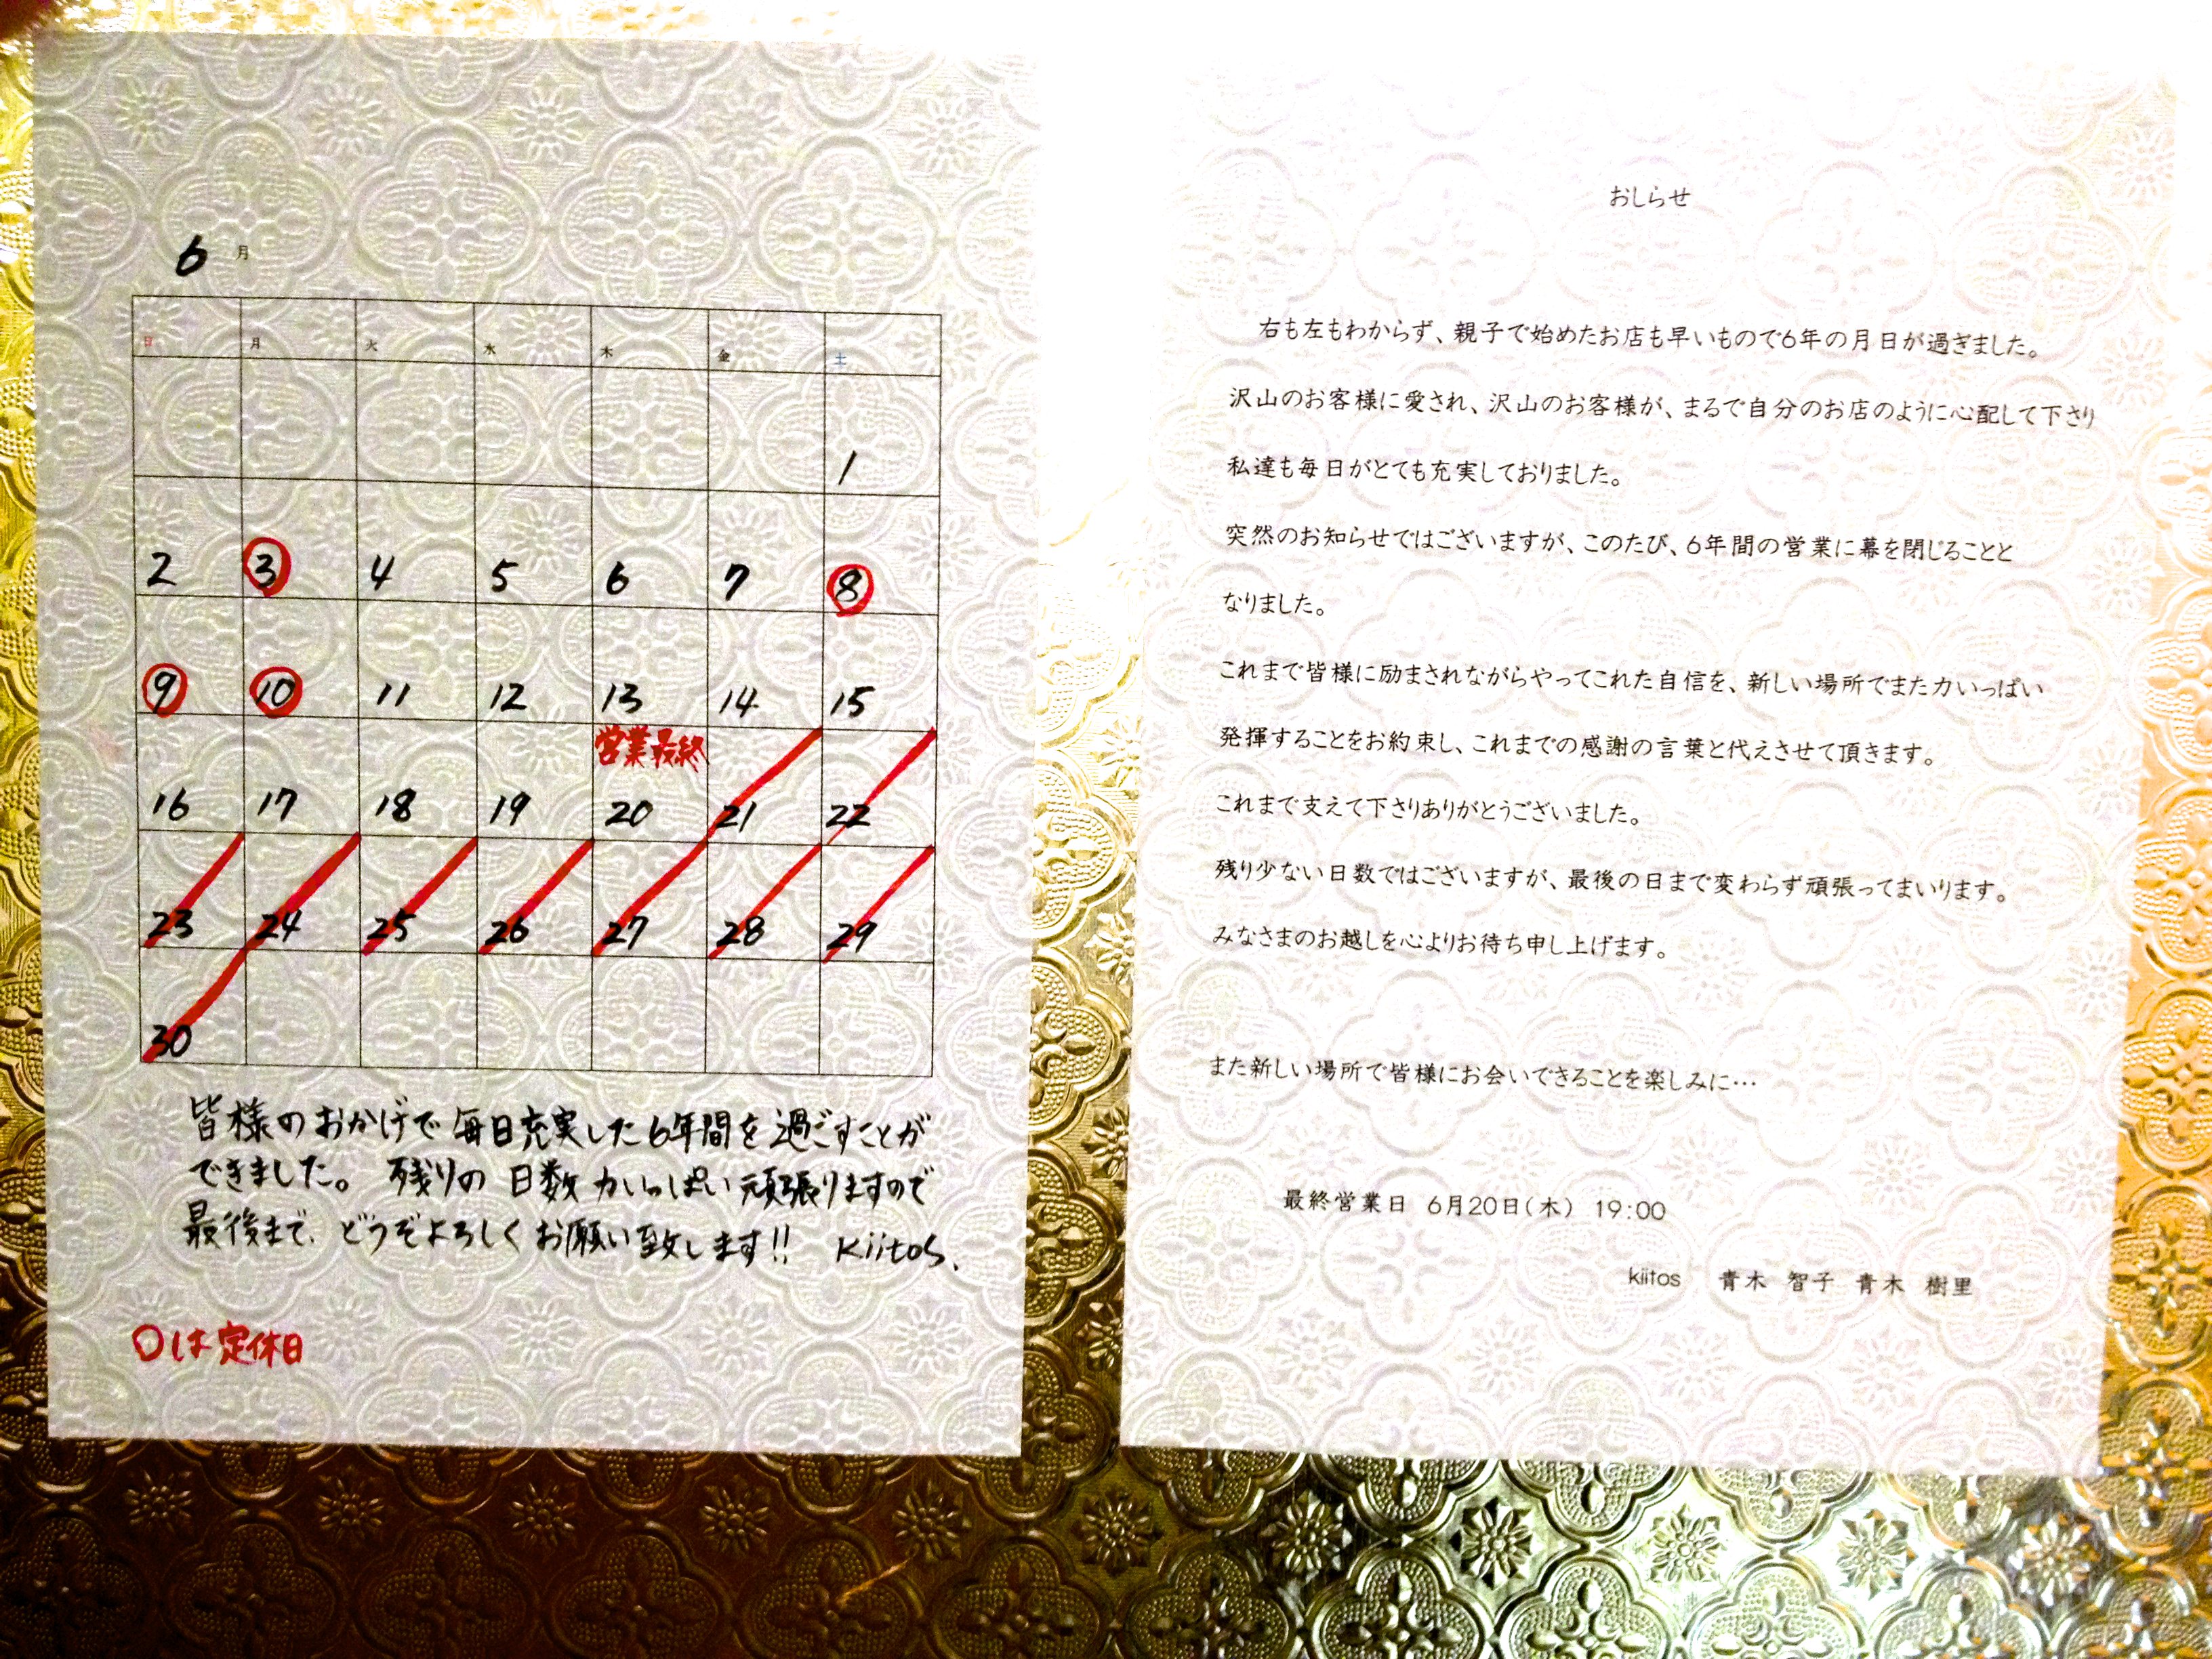 6月
日 月 火 水 木 金 土
1
2 3 4 5 6 7 8
9 10 11 12 13 14 15
営業最終
16 17 18 19 20 21 22
23 24 25 26 27 28 29
30
皆様のおかげで毎日充実した6年間を過ごすことが
できました。残りの日数力いっぱい頑張りますので
最後まで、どうぞよろしくお願い致します!! kiitos.
○は定休日
おしらせ
右も左もわからず、親子で始めたお店も早いもので6年の月日が過ぎました。
沢山のお客様に愛され、沢山のお客様が、まるで自分のお店のように心配して下さり
私達も毎日がとても充実しておりました。
突然のお知らせではございますが、このたび、6年間の営業に幕を閉じることと
なりました。
これまで皆様に励まされながらやってこれた自信を、新しい場所でまた力いっぱい
発揮することをお約束し、これまでの感謝の言葉と代えさせて頂きます。
これまで支えて下さりありがとうございました。
残り少ない日数ではございますが、最後の日まで変わらず頑張ってまいります。
みなさまのお越しを心よりお待ち申し上げます。
また新しい場所で皆様にお会いできることを楽しみに…
最終営業日 6月20日(木) 19:00
kiitos 青木 智子 青木 樹里